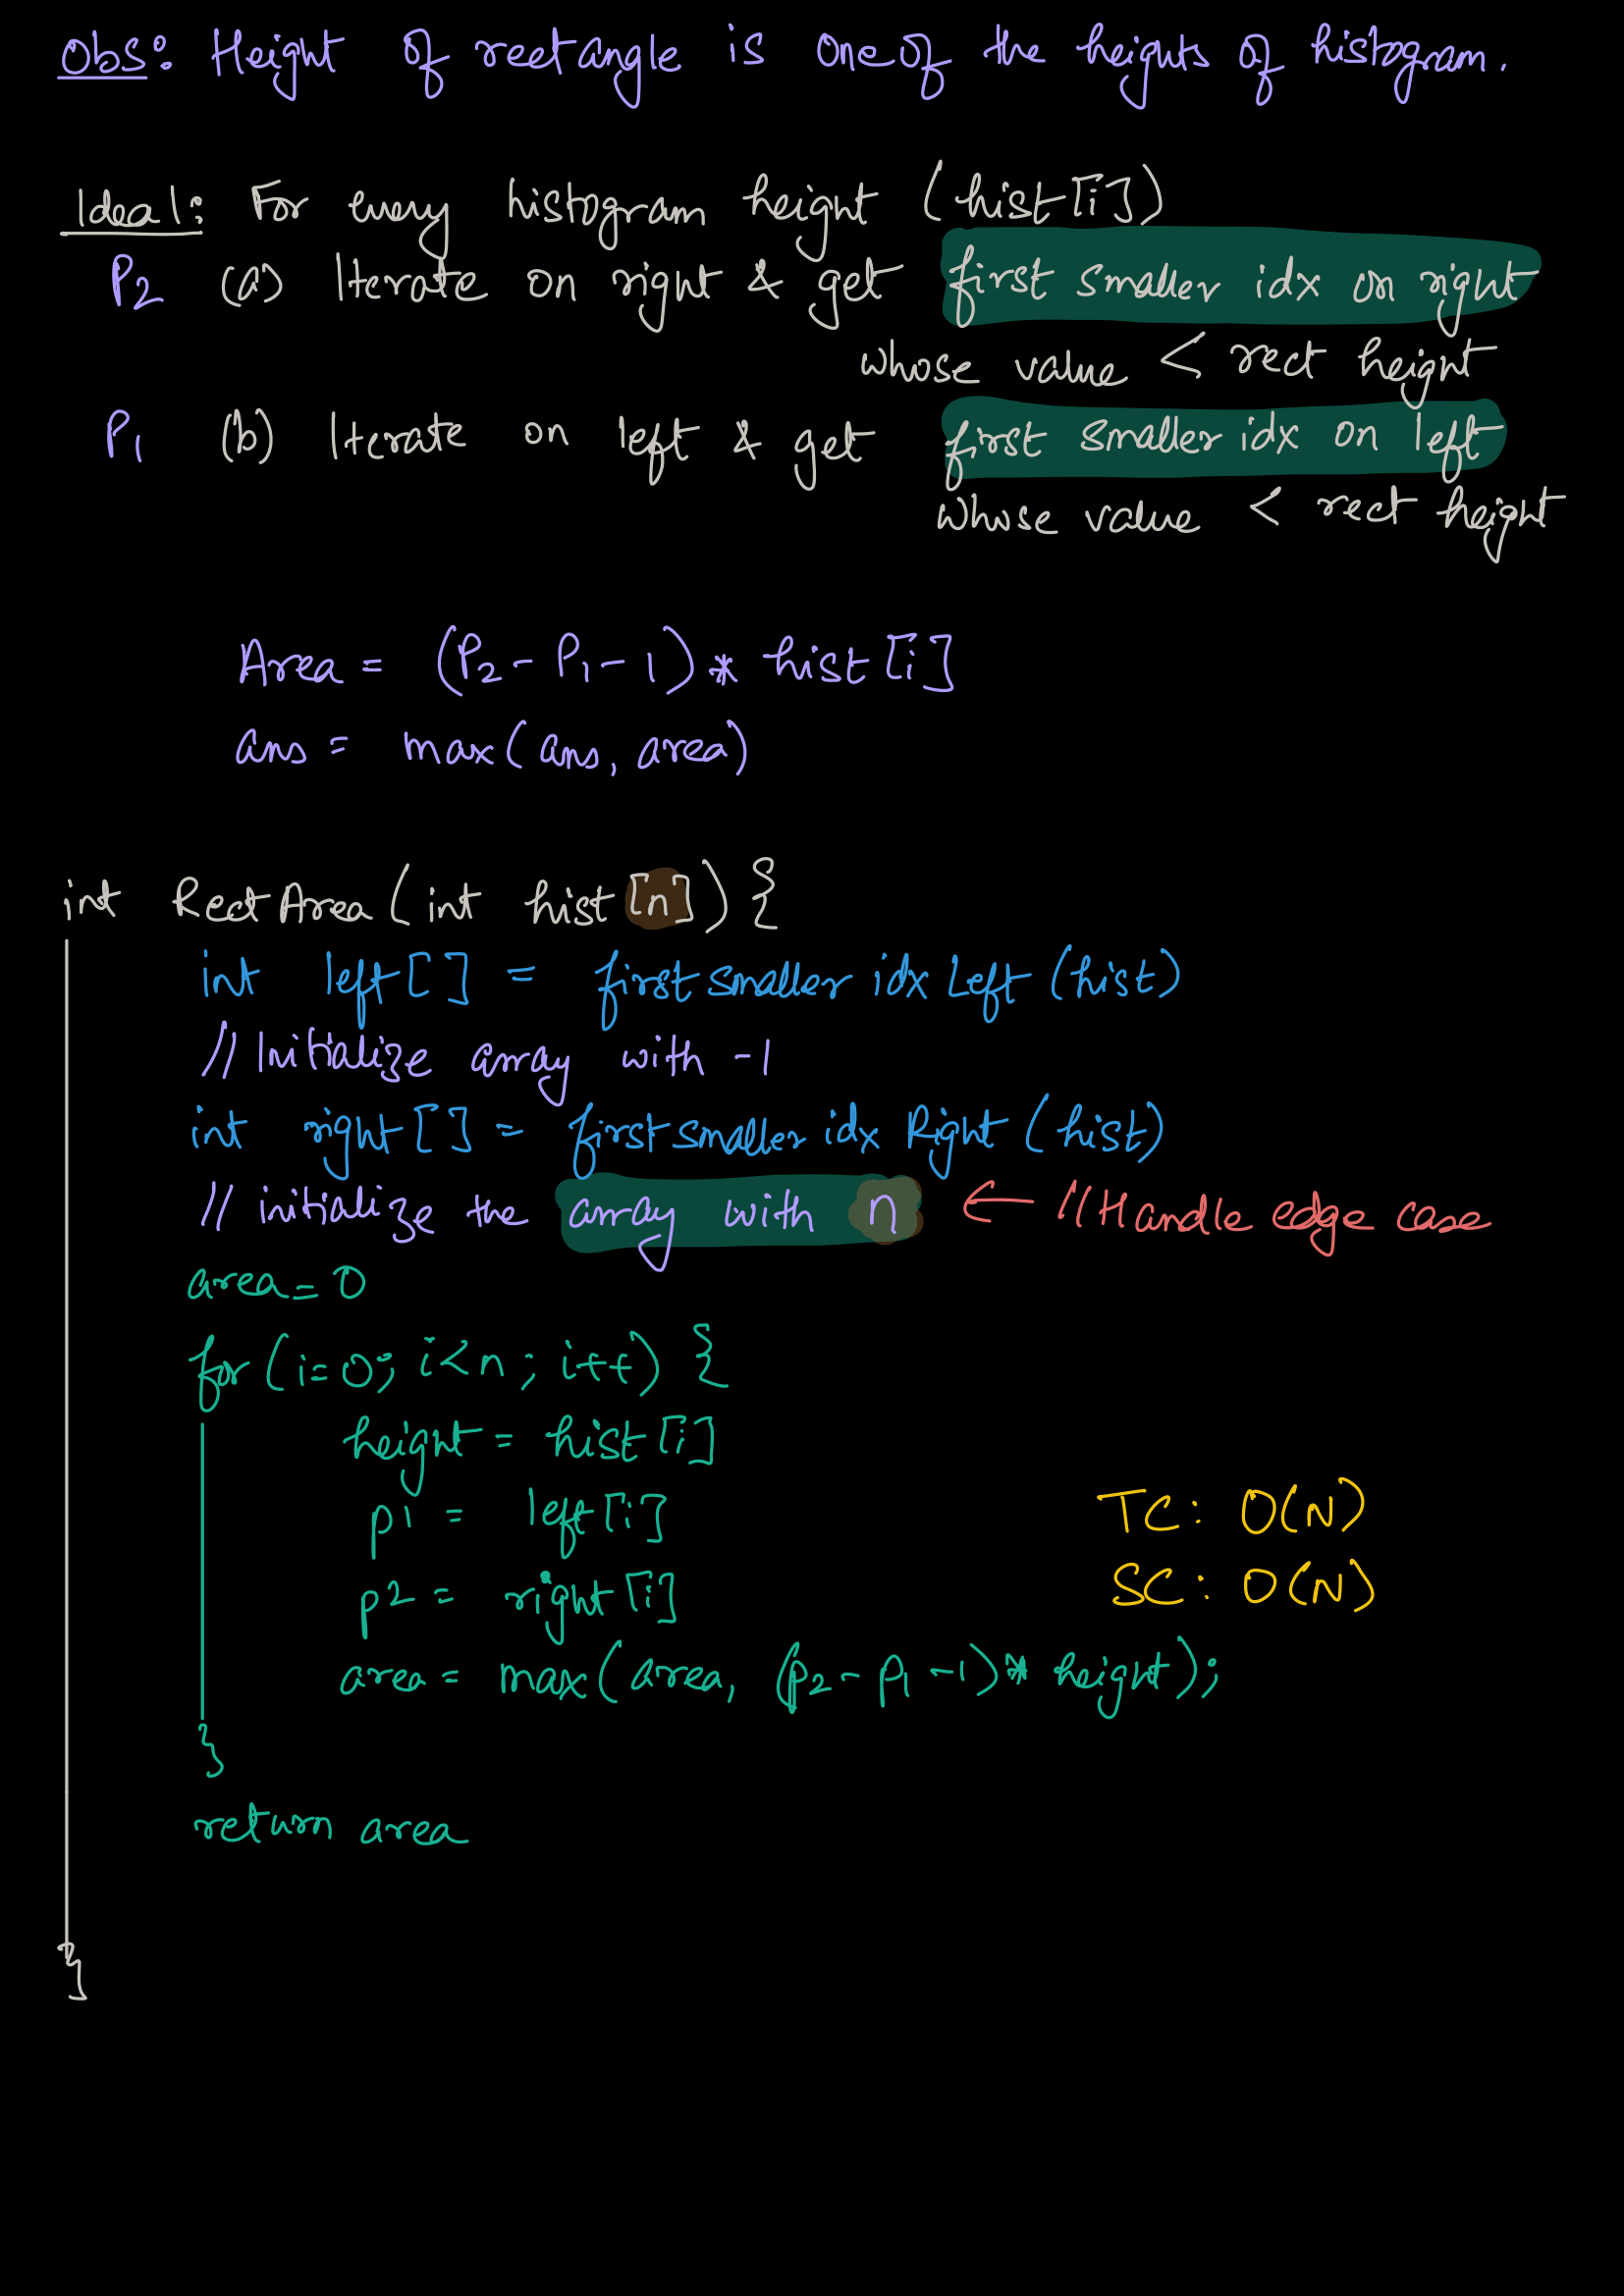 Obs: Height of rectangle is one of the heights of histogram.
Idea1: For every histogram height (hist[i])
P2 (a) Iterate on right & get first smaller idx on right
whose value < rect height
P1 (b) Iterate on left & get first smaller idx on left
whose value < rect height
Area = (P2 - P1 - 1) * hist[i]
ans = max(ans, area)
int RectArea(int hist[n]) {
int left[] = first smaller idx Left (hist)
// Initialize array with -1
int right[] = first smaller idx Right (hist)
// initialize the array with n ← // Handle edge case
area = 0
for (i=0; i<n; i++) {
height = hist[i]
p1 = left[i]
TC: O(N)
p2 = right[i]
SC: O(N)
area = max(area, (p2 - p1 - 1) * height);
}
return area
}